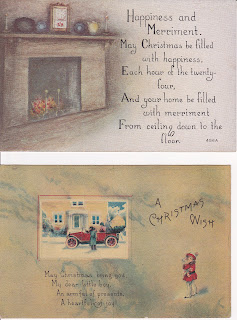 Happiness and
Merriment.
May Christmas be filled
with happiness,
Each hour of the twenty-
four,
And your home be filled
with merriment
From ceiling down to the
floor.
A
CHRISTMAS
WISH
May Christmas bring you
My dear little boy,
An armful of presents
A heartful of joy!